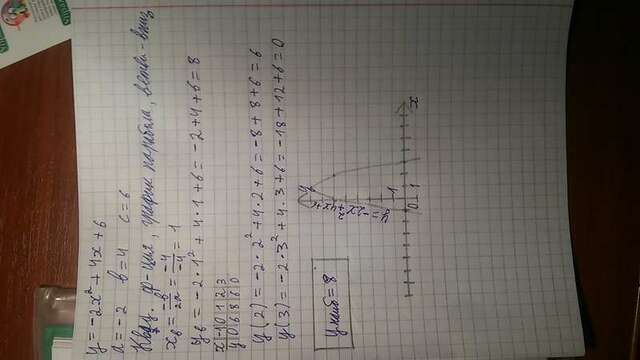 y = -2x² + 4x + 6
a = -2 b = 4 c = 6
Квад. ф-ция, график парабола, ветви - вниз
xв = -b/2a = -4/-4 = 1
yв = -2·1² + 4·1 + 6 = -2 + 4 + 6 = 8
x|-1|0|1|2|3
y|0|6|8|6|0
y(2) = -2·2² + 4·2 + 6 = -8 + 8 + 6 = 6
y(3) = -2·3² + 4·3 + 6 = -18 + 12 + 6 = 0
y наиб = 8
y
y = -2x² + 4x + 6
1
0 1 x